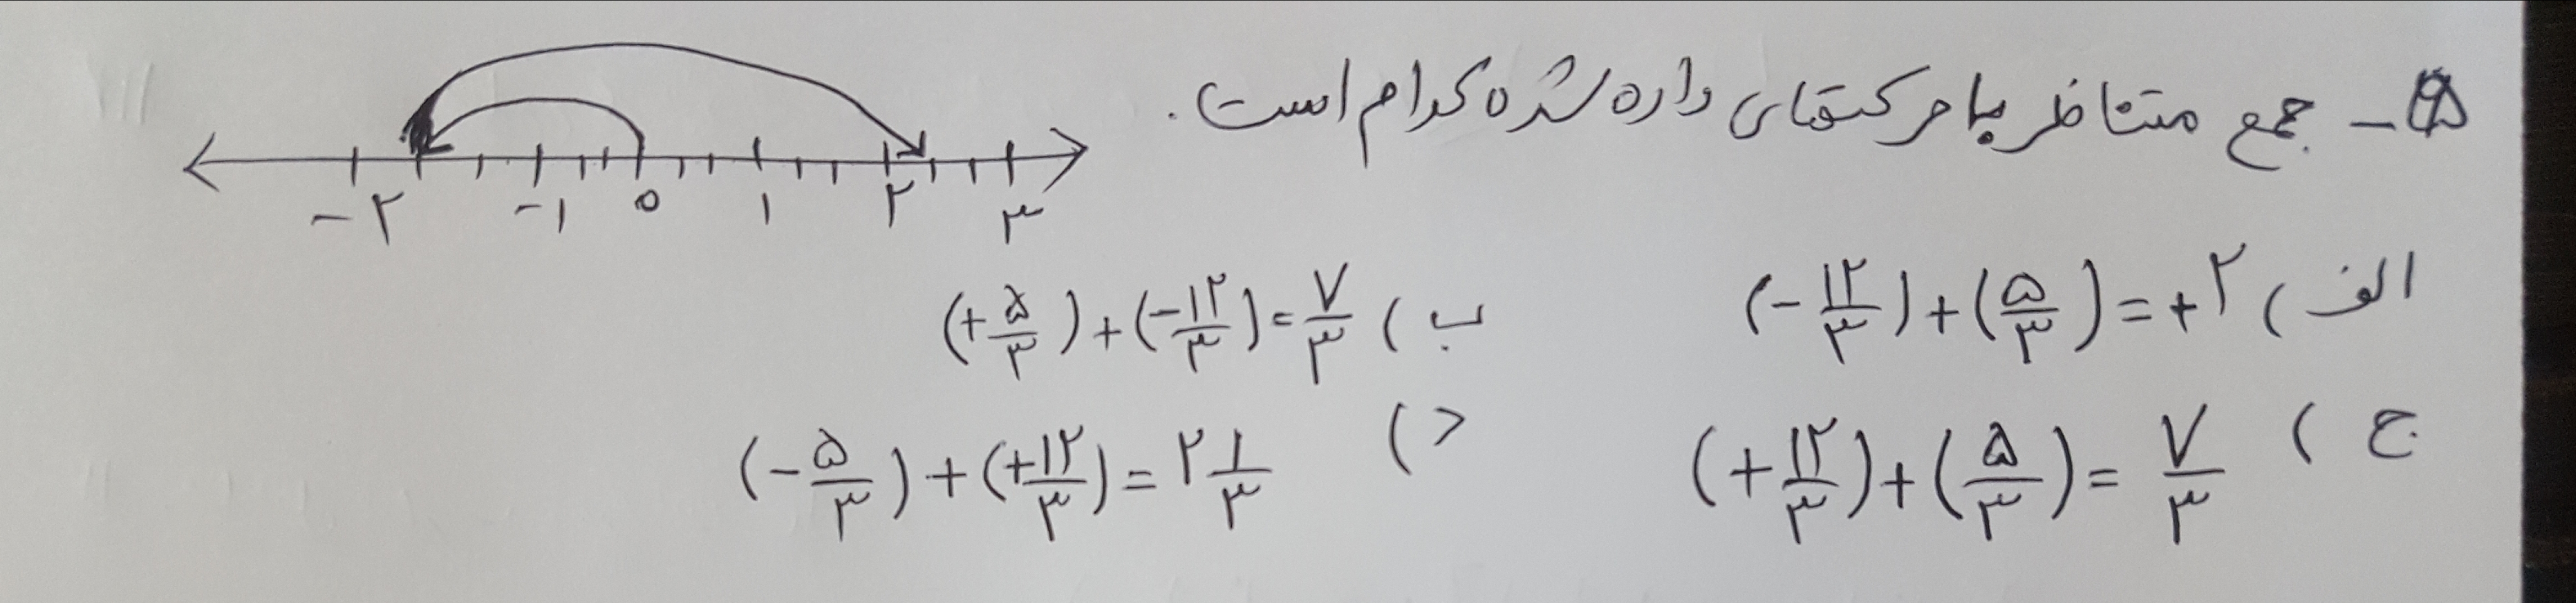 ۵- جمع متناظر با حرکتهای داده شده کدام است.
-۲ -۱ ۰ ۱ ۲ ۳
الف) (-۱۲/۳)+(۵/۳)=+۲
ب) (+۵/۳)+(-۱۲/۳)=۷/۳
ج) (+۱۲/۳)+(۵/۳)=۷/۳
د) (-۵/۳)+(+۱۲/۳)=۲ ۱/۳